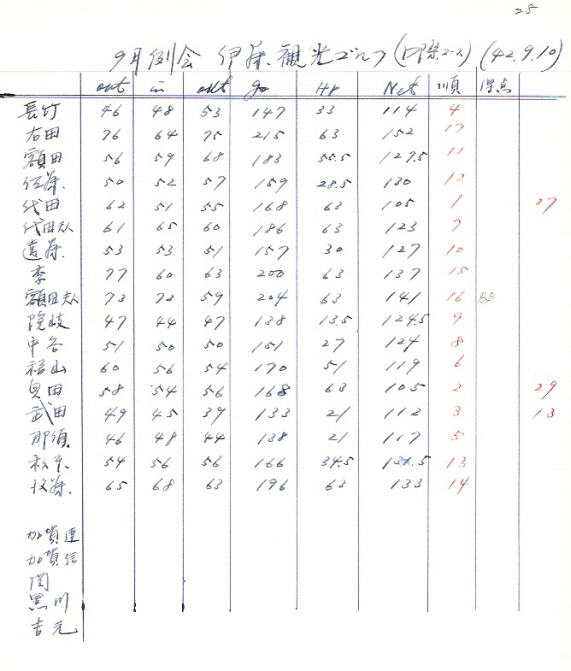 25
9月例会 伊豆観光ゴルフ (コース) (42.9.10)
out in out go Hr Net 順 得点
長竹 46 48 53 147 33 114 4
右田 76 64 75 215 63 152 17
額田 56 59 68 183 55.5 127.5 11
佐藤 50 52 57 159 28.5 130 12
代田 62 51 55 168 63 105 1 27
代田夫人 61 65 60 186 63 123 7
遠藤 53 53 51 157 30 127 10
李 77 60 63 200 63 137 15
額田夫人 73 72 59 204 63 141 16 BB
隠岐 47 44 47 138 13.5 124.5 9
中谷 51 50 50 151 27 124 8
福山 60 56 54 170 51 119 6
貝田 58 54 56 168 63 105 2 29
武田 49 45 39 133 21 112 3 13
那須 46 48 44 138 21 117 5
松下 54 56 56 166 34.5 131.5 13
65 68 63 196 63 133 14
加賀連
加賀信
関
黒川
吉元